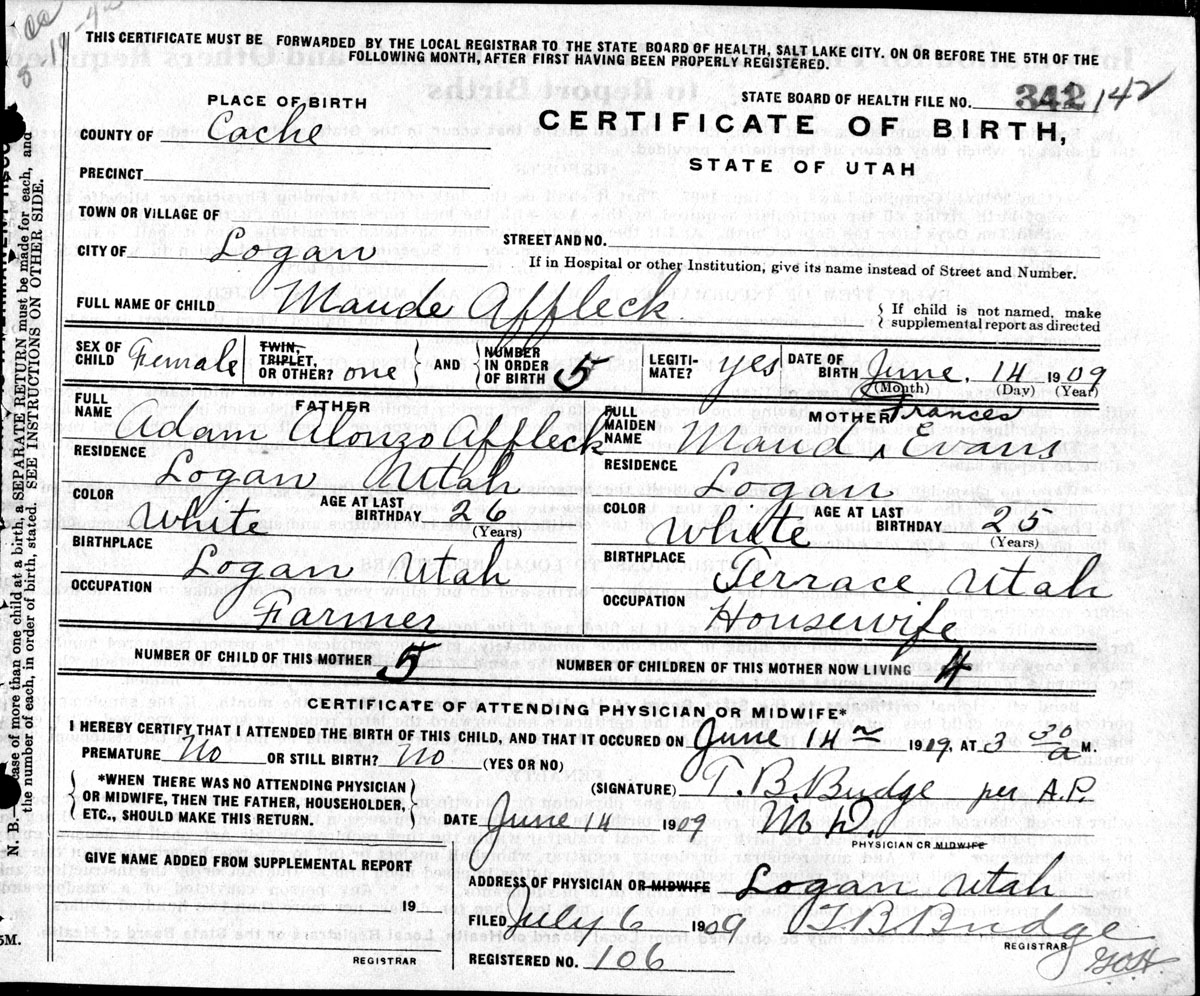 THIS CERTIFICATE MUST BE FORWARDED BY THE LOCAL REGISTRAR TO THE STATE BOARD OF HEALTH, SALT LAKE CITY, ON OR BEFORE THE 5TH OF THE
FOLLOWING MONTH, AFTER FIRST HAVING BEEN PROPERLY REGISTERED.
STATE BOARD OF HEALTH FILE NO. 342 142
PLACE OF BIRTH
COUNTY OF Cache
CERTIFICATE OF BIRTH,
STATE OF UTAH
PRECINCT
TOWN OR VILLAGE OF
CITY OF Logan
STREET AND NO.
If in Hospital or other Institution, give its name instead of Street and Number.
FULL NAME OF CHILD Maude Affleck
If child is not named, make
supplemental report as directed
SEX OF CHILD Female
TWIN, TRIPLET, OR OTHER? one AND NUMBER IN ORDER OF BIRTH 5
LEGITIMATE? yes
DATE OF BIRTH June 14 1909
(Month) (Day) (Year)
FATHER
FULL NAME Adam Alonzo Affleck
RESIDENCE Logan Utah
COLOR White AGE AT LAST BIRTHDAY 26
(Years)
BIRTHPLACE Logan Utah
OCCUPATION Farmer
MOTHER
FULL MAIDEN NAME Maud ^ Frances Evans
RESIDENCE Logan
COLOR White AGE AT LAST BIRTHDAY 25
(Years)
BIRTHPLACE Terrace Utah
OCCUPATION Housewife
NUMBER OF CHILD OF THIS MOTHER 5 NUMBER OF CHILDREN OF THIS MOTHER NOW LIVING 4
CERTIFICATE OF ATTENDING PHYSICIAN OR MIDWIFE*
I HEREBY CERTIFY THAT I ATTENDED THE BIRTH OF THIS CHILD, AND THAT IT OCCURED ON June 14th 1909, AT 3 30 a M.
PREMATURE No OR STILL BIRTH? No (YES OR NO)
*WHEN THERE WAS NO ATTENDING PHYSICIAN
OR MIDWIFE, THEN THE FATHER, HOUSEHOLDER,
ETC., SHOULD MAKE THIS RETURN.
(SIGNATURE) T. B. Budge per A.P.
DATE June 14 1909 M.D.
PHYSICIAN OR MIDWIFE
GIVE NAME ADDED FROM SUPPLEMENTAL REPORT
19
REGISTRAR
ADDRESS OF PHYSICIAN OR MIDWIFE Logan Utah
FILED July 6 1909 T. B. Budge
REGISTRAR
REGISTERED NO. 106
N. B.—In case of more than one child at a birth, a SEPARATE RETURN must be made for each, and
the number of each, in order of birth, stated. SEE INSTRUCTIONS ON OTHER SIDE.